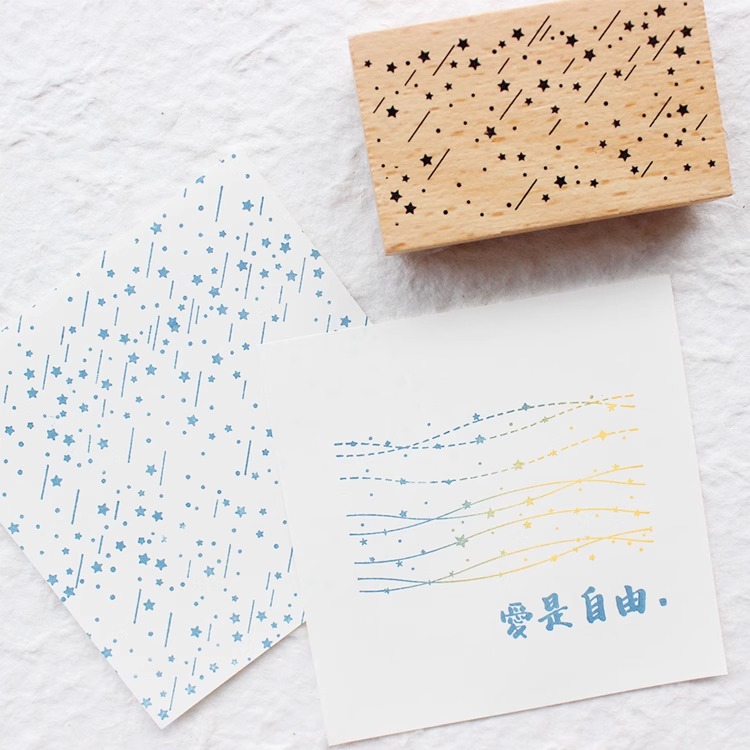 愛是自由.